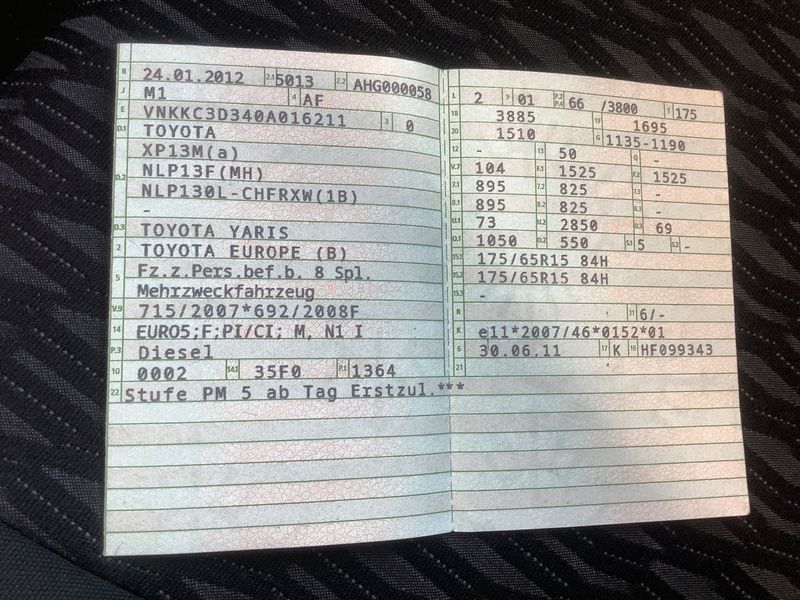 B 24.01.2012 2.1 5013 2.2 AHG000058
J M1 4 AF
E VNKKC3D340A016211 3 0
D.1 TOYOTA
XP13M(a)
D.2 NLP13F(MH)
NLP130L-CHFRXW(1B)
-
D.3 TOYOTA YARIS
2 TOYOTA EUROPE (B)
5 Fz.z.Pers.bef.b. 8 Spl.
Mehrzweckfahrzeug
V.9 715/2007*692/2008F
14 EURO5;F;PI/CI; M, N1 I
P.3 Diesel
10 0002 14.1 35F0 P.1 1364
22 Stufe PM 5 ab Tag Erstzul.***
L 2 9 01 P.2 P.4 66 /3800 T 175
18 3885 19 1695
20 1510 G 1135-1190
12 - 13 50 Q -
V.7 104 F.1 1525 F.2 1525
7.1 895 7.2 825 7.3 -
8.1 895 8.2 825 8.3 -
U.1 73 U.2 2850 U.3 69
O.1 1050 O.2 550 S.1 5 S.2 -
15.1 175/65R15 84H
15.2 175/65R15 84H
15.3 -
R 11 6/-
K e11*2007/46*0152*01
6 30.06.11 17 K 16 HF099343
21